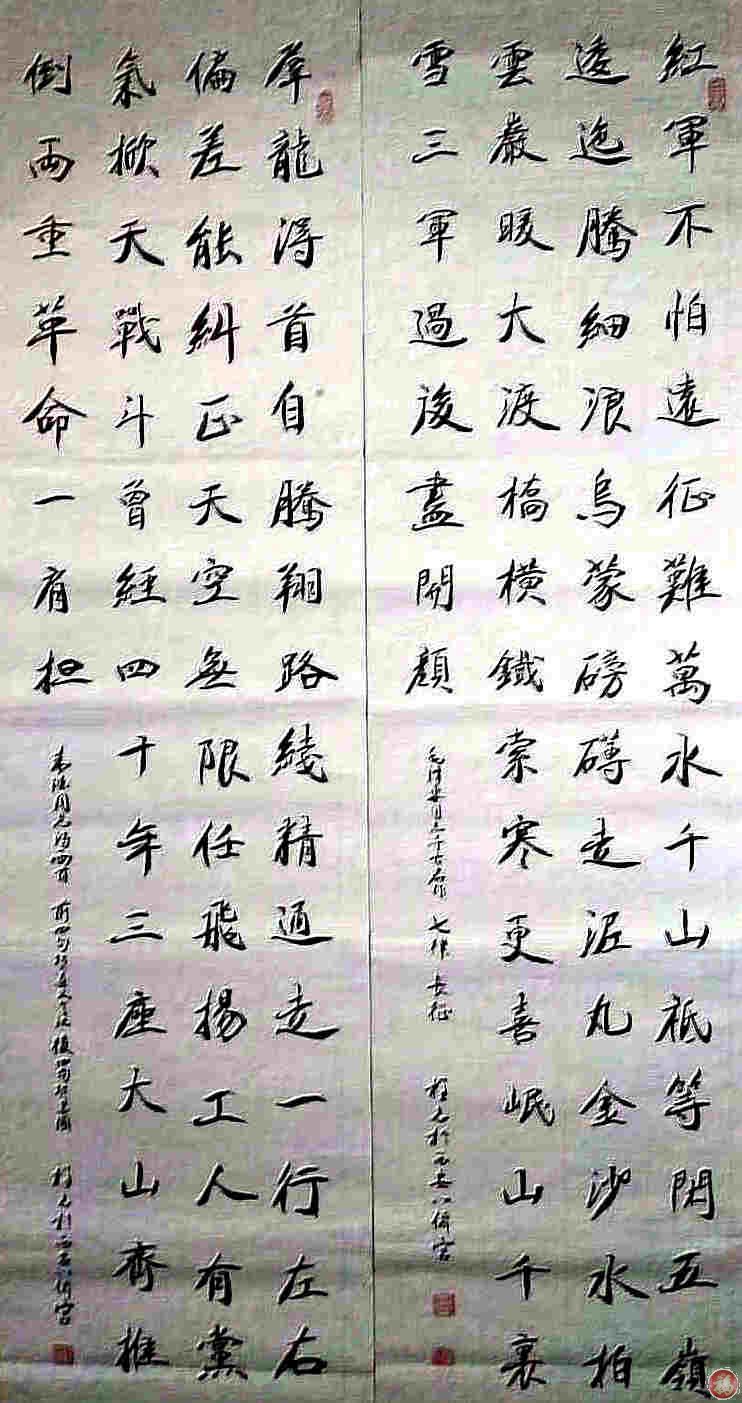 紅軍不怕遠征難萬水千山祗等閑五嶺
逶迤騰細浪烏蒙磅礡走泥丸金沙水拍
雲巖暖大渡橋橫鐵索寒更喜岷山千裏
雪三軍過後盡開顏
七律 長征
羣龍得首自騰翔路綫精通走一行左右
偏差能糾正天空無限任飛揚工人有黨
氣掀天戰斗曾經四十年三座大山齊推
倒兩重革命一肩担